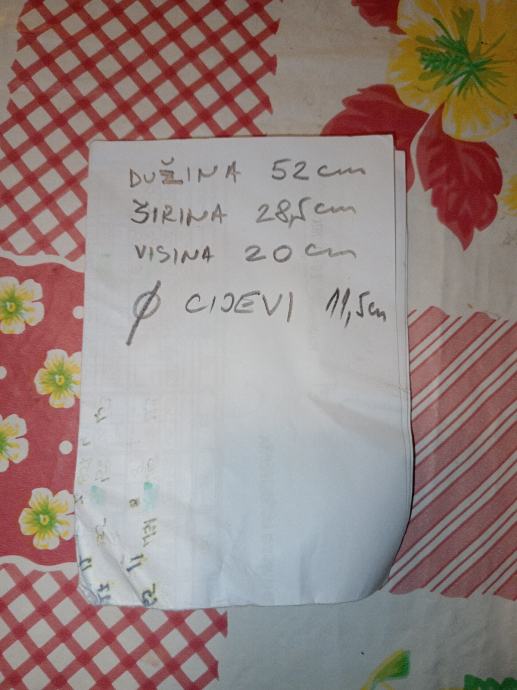 DUŽINA 52 cm
ŠIRINA 28,5 cm
VISINA 20 cm
Ø CIJEVI 11,5 cm